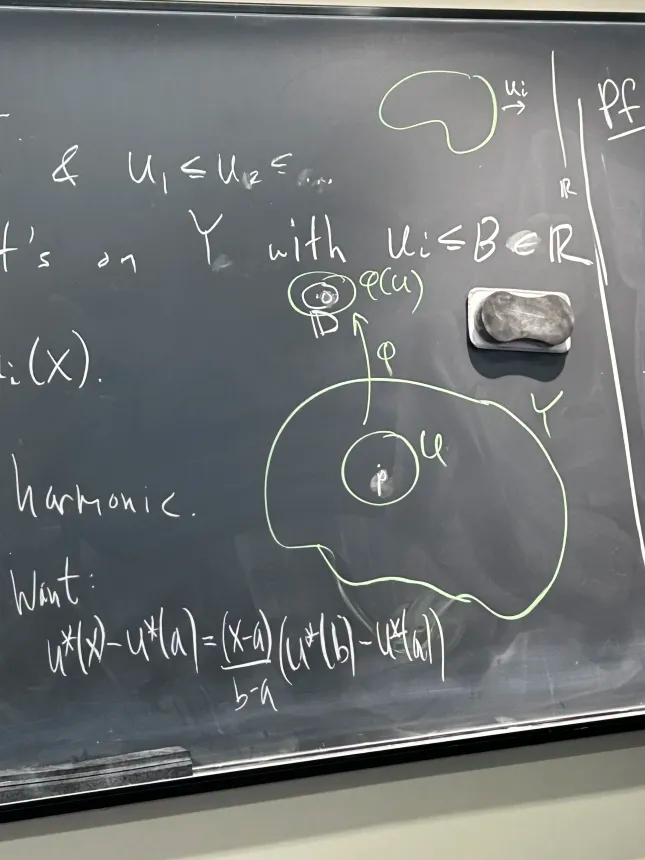 & u₁ ≤ u₂ ≤ ...
t's on Y with uᵢ ≤ B ∈ ℝ
ᵢ(x).
harmonic.
Want:
u*(x)-u*(a)=(x-a)/(b-a)(u*(b)-u*(a))
uᵢ
→
ℝ
φ(U)
D
φ
Y
U
p
Pf